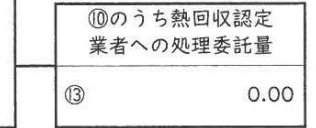 ⑩のうち熱回収認定
業者への処理委託量
⑬ 0.00